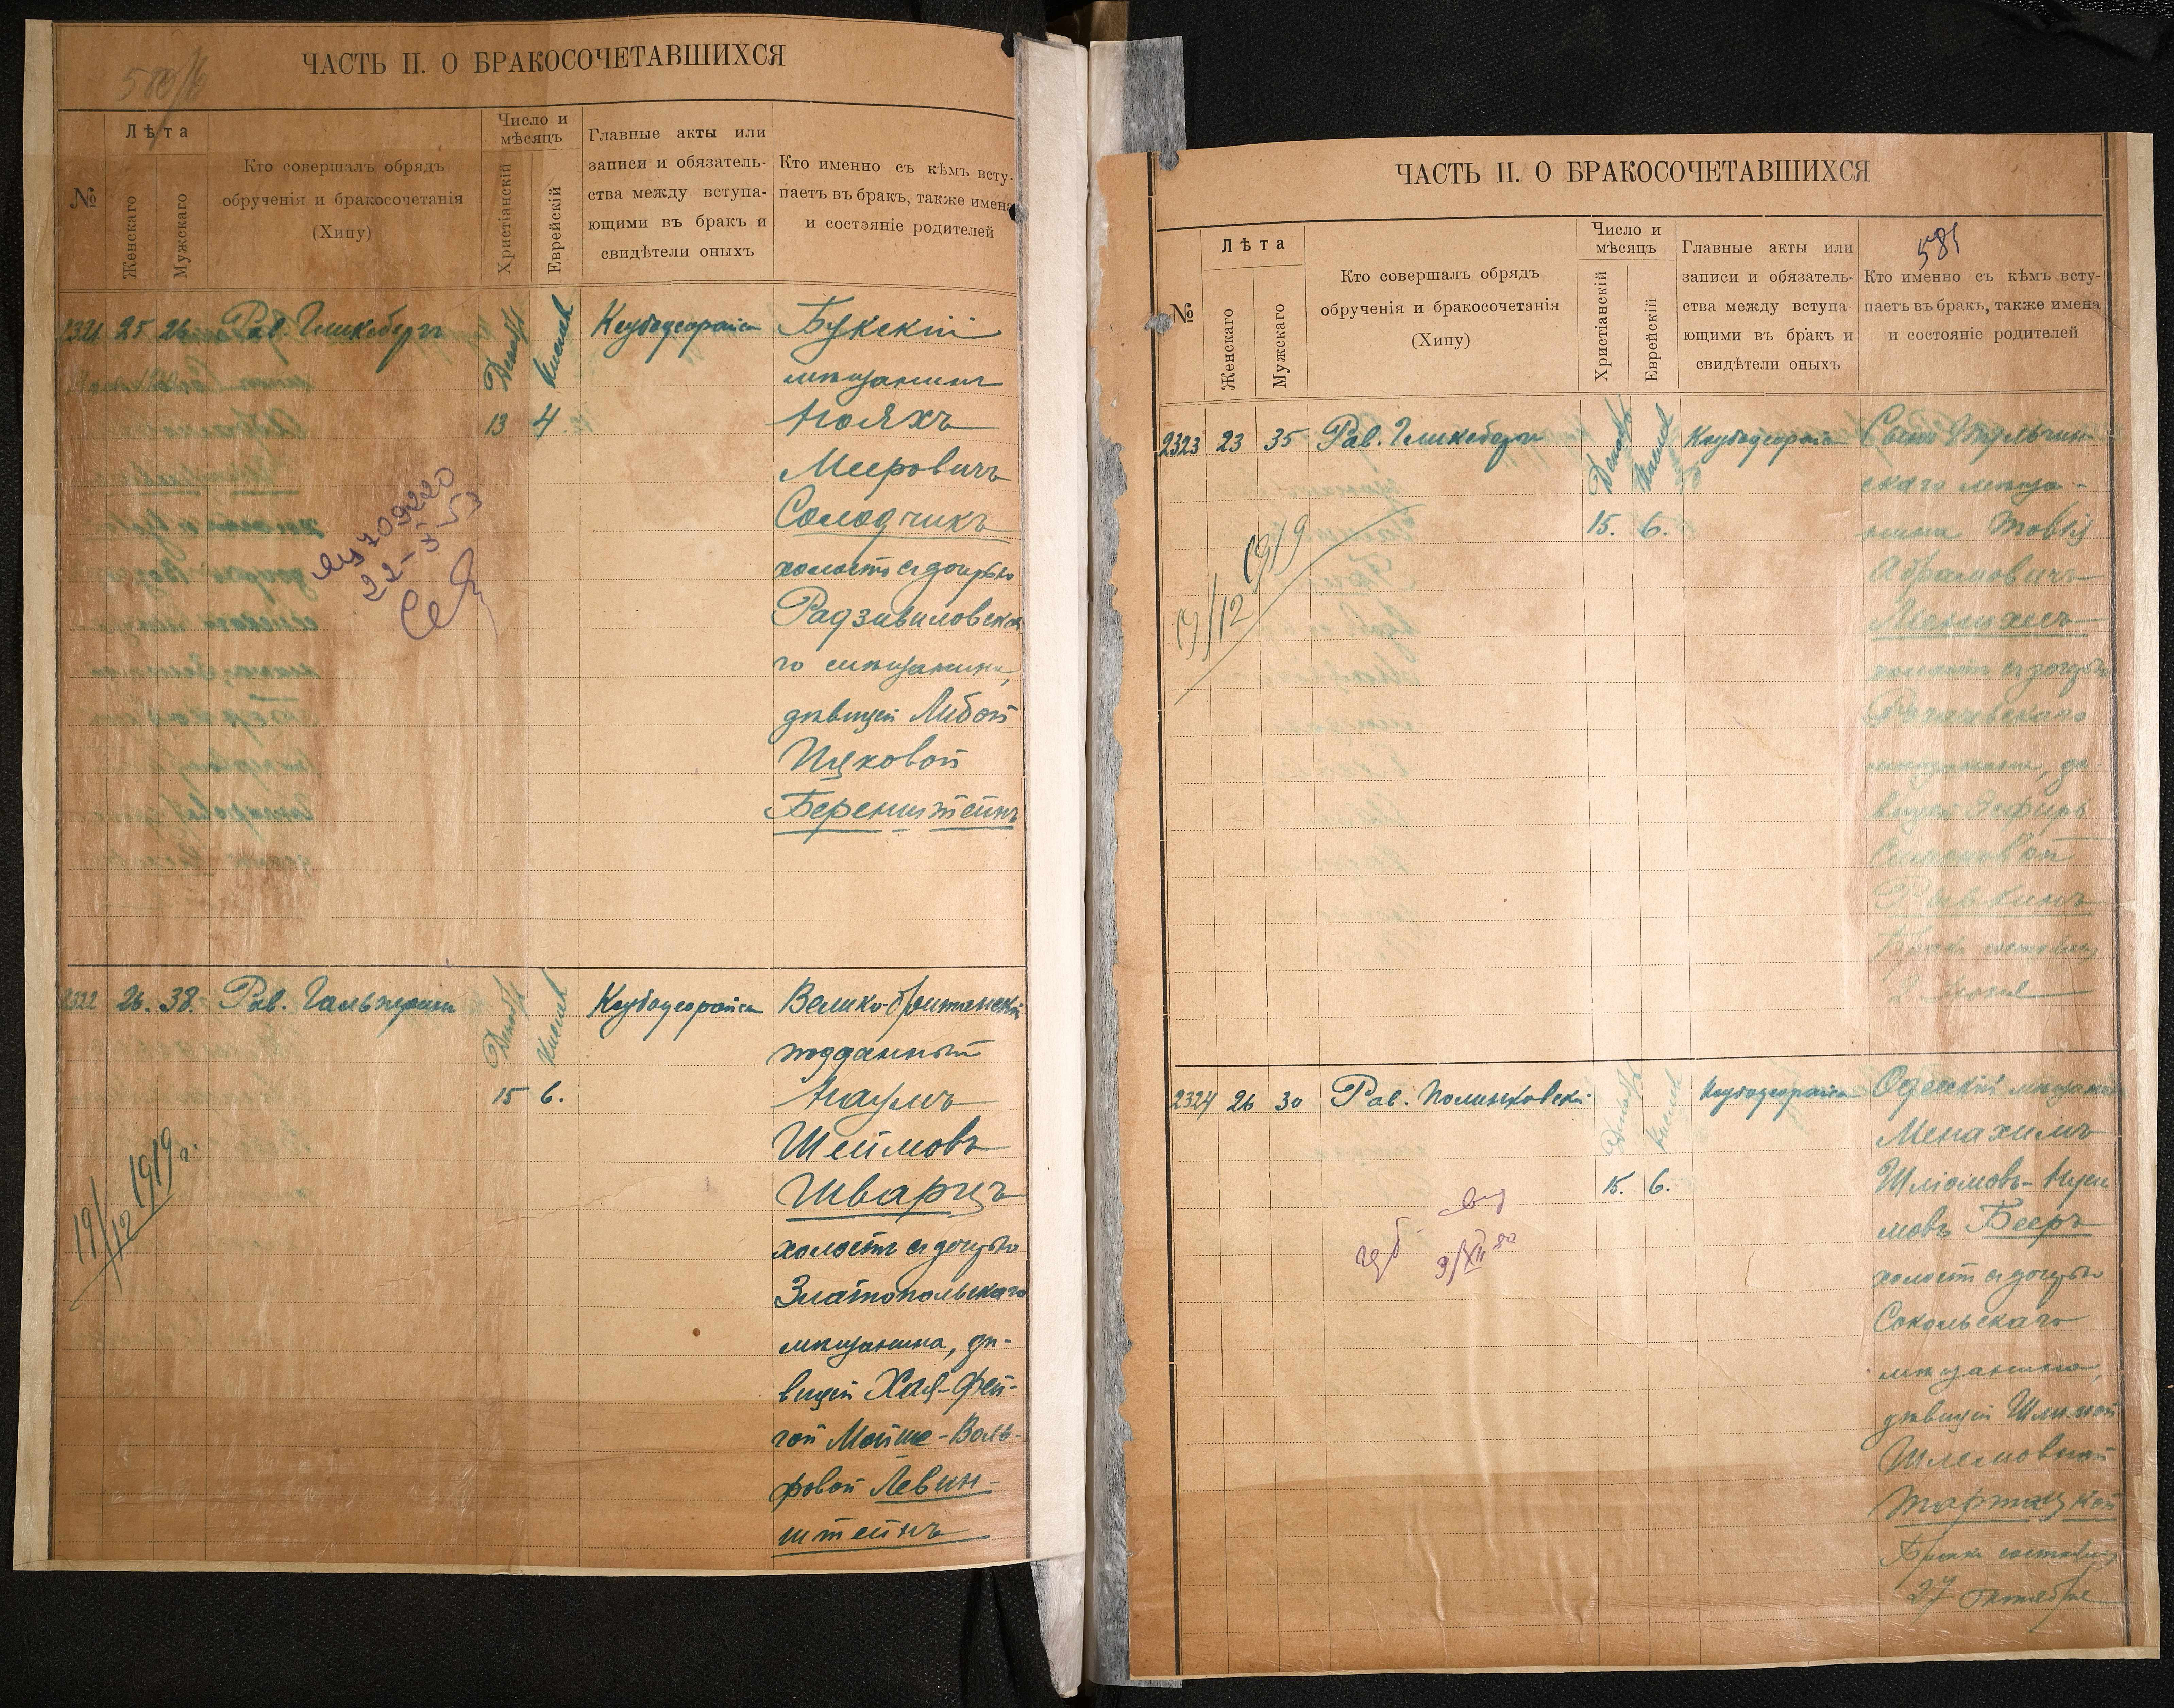 ЧАСТЬ II. О БРАКОСОЧЕТАВШИХСЯ
№
Лѣта
Женскаго
Мужскаго
Кто совершалъ обрядъ
обрученія и бракосочетанія
(Хипу)
Число и
мѣсяцъ
Христіанскій
Еврейскій
Главные акты или
записи и обязатель-
ства между вступа-
ющими въ бракъ и
свидѣтели оныхъ
Кто именно съ кѣмъ всту-
паетъ въ бракъ, также имена
и состояніе родителей
2321 25 26 Рав. Гликсбергъ
Декабр
Кислев
13 4
Букскій
мѣщанинъ
Нояхъ
Меировичъ
Солодчикъ
холостъ съ дочерью
Радзивиловска
го мѣщанина,
дѣвицей Либой
Ицковой
Беренштейнъ
22-5-53
2322 26. 38. Рав. Гальперинъ
Декабр
Кислев
15 6.
Велико-британскій
подданный
Наумъ
Шеймовъ
Шварцъ
холостъ съ дочерью
Златопольскаго
мѣщанина, дѣ-
вицей Хая-Фей-
гой Мойше-Воль-
фовой Левин-
штейнъ
19/12 1919 г.
ЧАСТЬ II. О БРАКОСОЧЕТАВШИХСЯ
581
№
Лѣта
Женскаго
Мужскаго
Кто совершалъ обрядъ
обрученія и бракосочетанія
(Хипу)
Число и
мѣсяцъ
Христіанскій
Еврейскій
Главные акты или
записи и обязатель-
ства между вступа-
ющими въ бракъ и
свидѣтели оныхъ
Кто именно съ кѣмъ всту-
паетъ въ бракъ, также имена
и состояніе родителей
2323 23 35 Рав. Гликсбергъ
Декабр
Кислев
15. 6.
Сынъ Тульчин-
скаго мѣща-
нина
Абрамовичъ
холостъ съ дочерью
мѣщанина, дѣ-
вицей Эсфирь
Симоновой
Рывкинъ
Бракъ состоялся
2 Іюня
19/12 1919
2324 26 30 Рав. Полинковскій
Декабр
Кислев
15. 6.
Одесскій мѣщанинъ
Менахимъ
Шліомовъ-Нухи
мовъ Бееръ
холостъ съ дочерью
Сокольскаго
мѣщанина,
дѣвицей
Шлемовной
Бракъ состоялся
27 октября